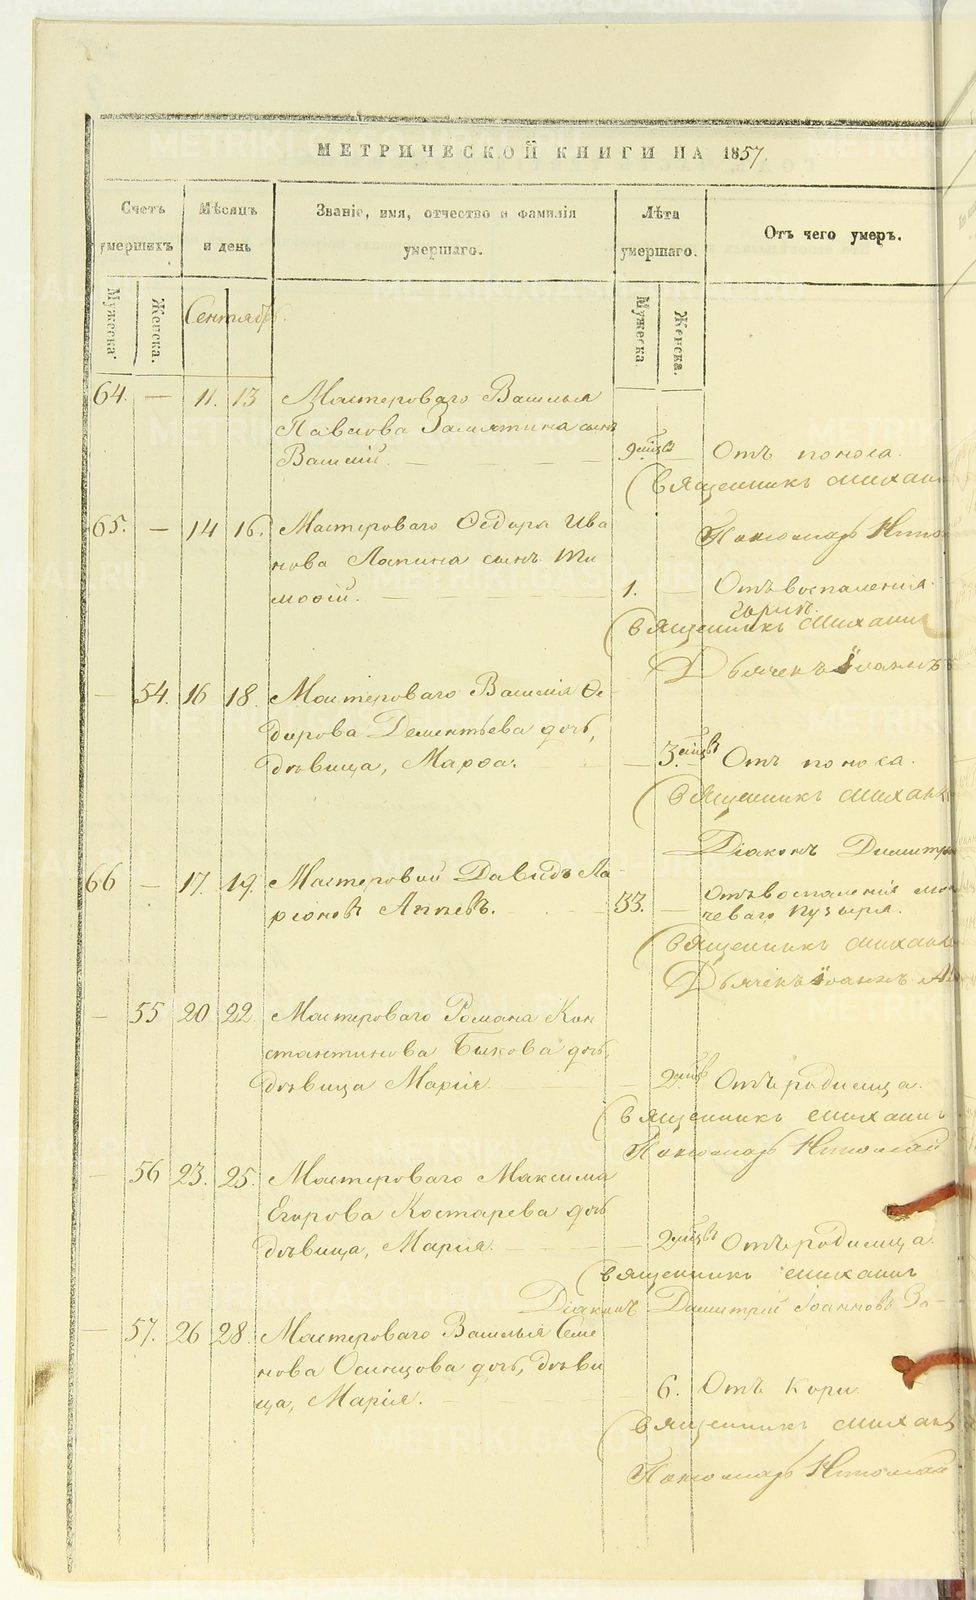 МЕТРИЧЕСКОЙ КНИГИ НА 1857.
Счетъ умершихъ
Мѣсяцъ и день
Званіе, имя, отчество и фамилія умершаго.
Лѣта умершаго.
Отъ чего умеръ.
Мужеска. Женска. Сентябрь. Мужеска Женска.
64. — 11. 13 Мастероваго Василья
Павлова Замятина сынъ
Василій. 9 мцвъ Отъ поноса.
Священникъ Михаилъ
65. — 14 16. Мастероваго Ѳедора Ива
Пономарь Нико
нова Лапина сынъ Ти
моѳей. 1. Отъ воспаленія
горла.
Священникъ Михаилъ
Дьячекъ Іоаннъ
— 54. 16 18. Мастероваго Василія Ѳе
дорова Дементьева дочь,
дѣвица, Марѳа. 3. мцвъ Отъ поноса.
Священникъ Михаилъ
Діаконъ Димитр
66 — 17. 19. Мастеровой Давидъ Ла
ріоновъ 53. Отъ воспаленія мо
чеваго пузыря.
Священникъ Михаилъ
Дьячекъ Іоаннъ
— 55 20 22. Мастероваго Романа Кон
стантинова Быкова дочь,
дѣвица Марія — 2 мцвъ Отъ родимца.
Священникъ Михаилъ
Пономарь Николай
— 56 23. 25. Мастероваго Максима
Егорова Костарева дочь
дѣвица, Марія. — 2 мцвъ Отъ родимца.
Священникъ Михаилъ
Діаконъ Димитрій Іоанновъ За-
— 57. 26 28. Мастероваго Василья Семе
нова Осинцова дочь, дѣви
ца, Марія. — 6. Отъ кори
Священникъ Михаилъ
Пономарь Николай